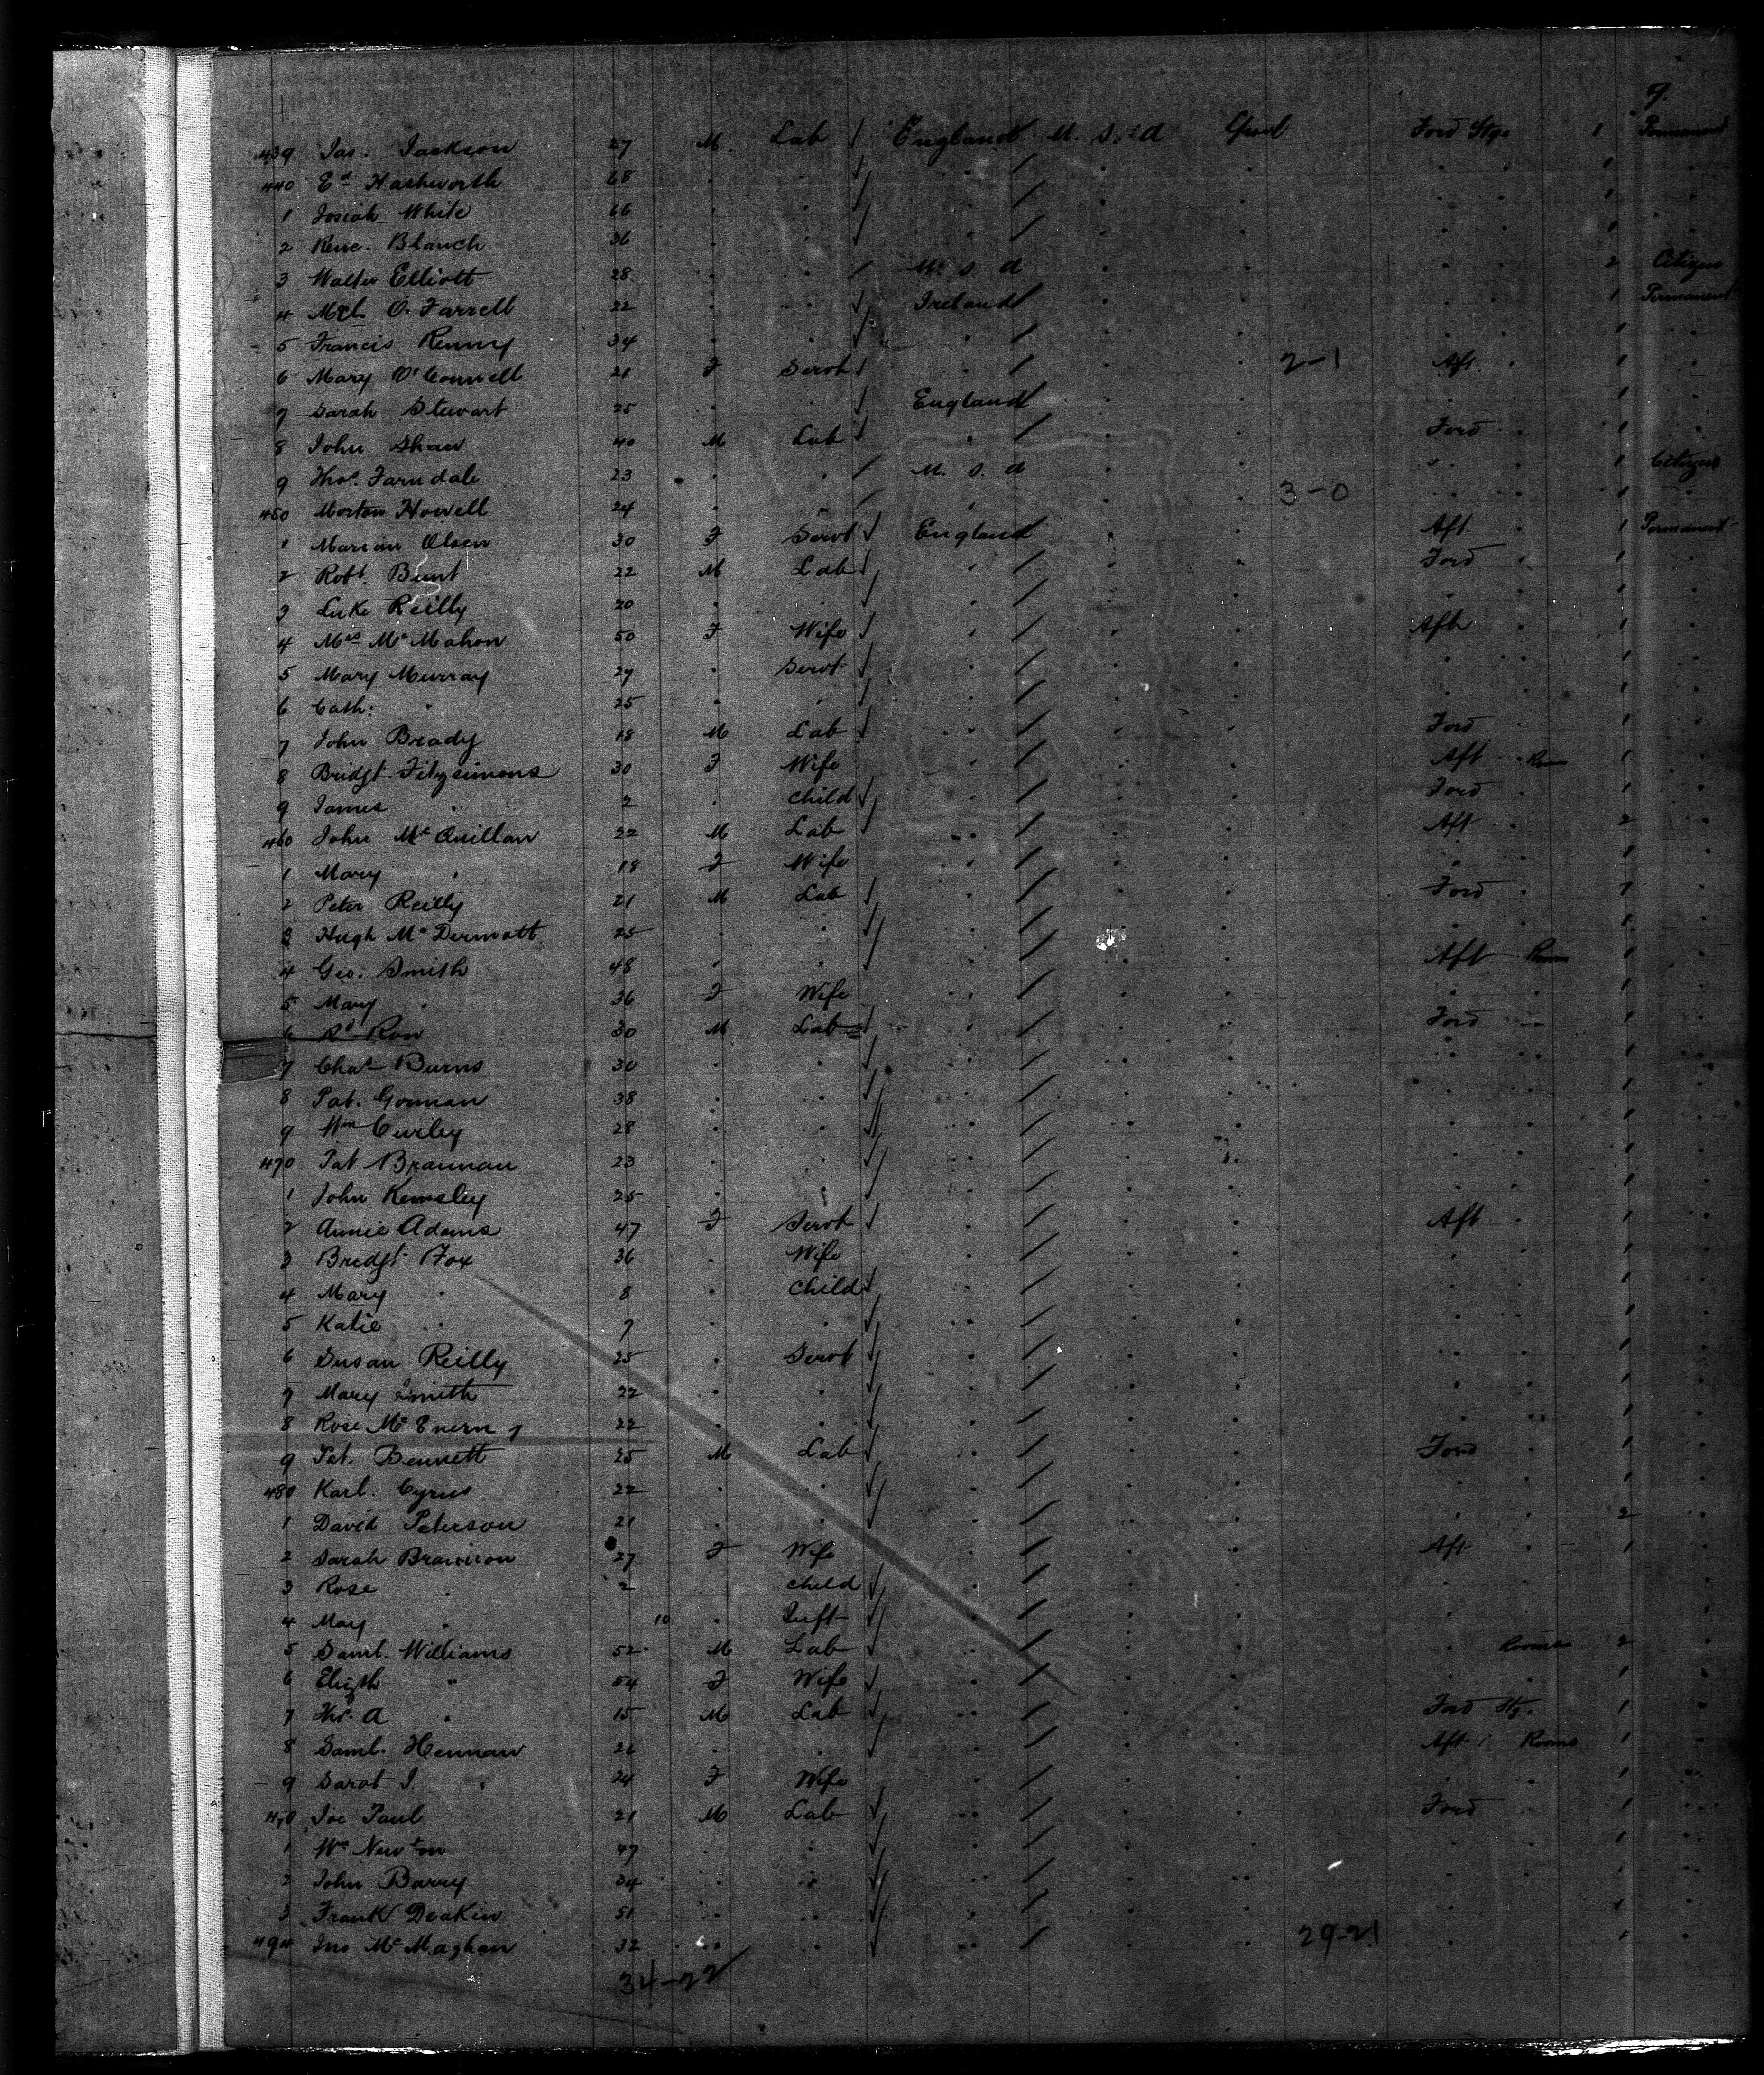 9.
439 Jas. Jackson 27 M. Lab England U. S. a Ford Stge 1 Permanent
440 Ed Hashworth 68
1 Josiah White 66 1
2 Blanch 36 1
3 Walter Elliott 28 U. S. a 2 Citizen
4 Mcl. O. Farrell 22 Ireland 1 Permanent
5 Francis Renny 34 1
6 Mary O'Connell 21 F Servt 2-1 Aft. 1
7 Sarah Stewart 25 England 1
8 John Shaw 40 M Lab Ford 1
9 Thos. Farndale 23 U. S. a 1 Citizen
450 Morton Howell 24 3-0 1
1 Marian Olsen 30 F Servt England Aft. 1 Permanent
2 Robt. Bunt 22 M Lab Ford 1
3 Luke Reilly 20 1
4 Mrs McMahon 50 F Wife Aft 1
5 Mary Murray 27 Servt 1
6 Cath: " 25 1
7 John Brady 18 M Lab Ford 1
8 Bridgt. Fitzsimons 30 F Wife Aft Room 1
9 James " 2 Child Ford 1
460 John McQuillan 22 M Lab Aft 2
1 Mary " 18 F Wife 1
2 Peter Reilly 21 M Lab Ford 1
3 Hugh McDermott 25 1
4 Geo. Smith 48 Aft Room 1
5 Mary " 36 F Wife 1
6 Rd Row 30 M Lab Ford 1
7 Chas Burns 30 1
8 Pat. Gorman 38 1
9 Wm Curley 28 1
470 Pat Brannan 23 1
1 John Kemsley 25 1
2 Annie Adams 47 F Servt Aft 1
3 Bredgt. Fox 36 Wife 1
4 Mary " 8 Child 1
5 Katie " 7 1
6 Susan Reilly 25 Servt 1
7 Mary Smith 22 1
8 Rose McEnerny 22 1
9 Pat. Bennett 25 M Lab Ford 1
480 Karl. Cyrus 22 1
1 David Peterson 21 2
2 Sarah Brannon 27 F Wife Aft 1
3 Rose " 2 Child
4 May " 10 Inft
5 Saml. Williams 52 M Lab Rooms 2
6 Elizth " 54 F Wife 1
7 Thos. A " 15 M Lab Ford Stg. 1
8 Saml. Hennan 26 Aft Rooms 1
9 Sarah J. " 24 F Wife 1
490 Joe Paul 21 M Lab Ford 1
1 Wm Newton 47 1
2 John Barry 34
3 Frank Deakin 51 1
494 Jno McMaghan 32 29-21 1
34-22